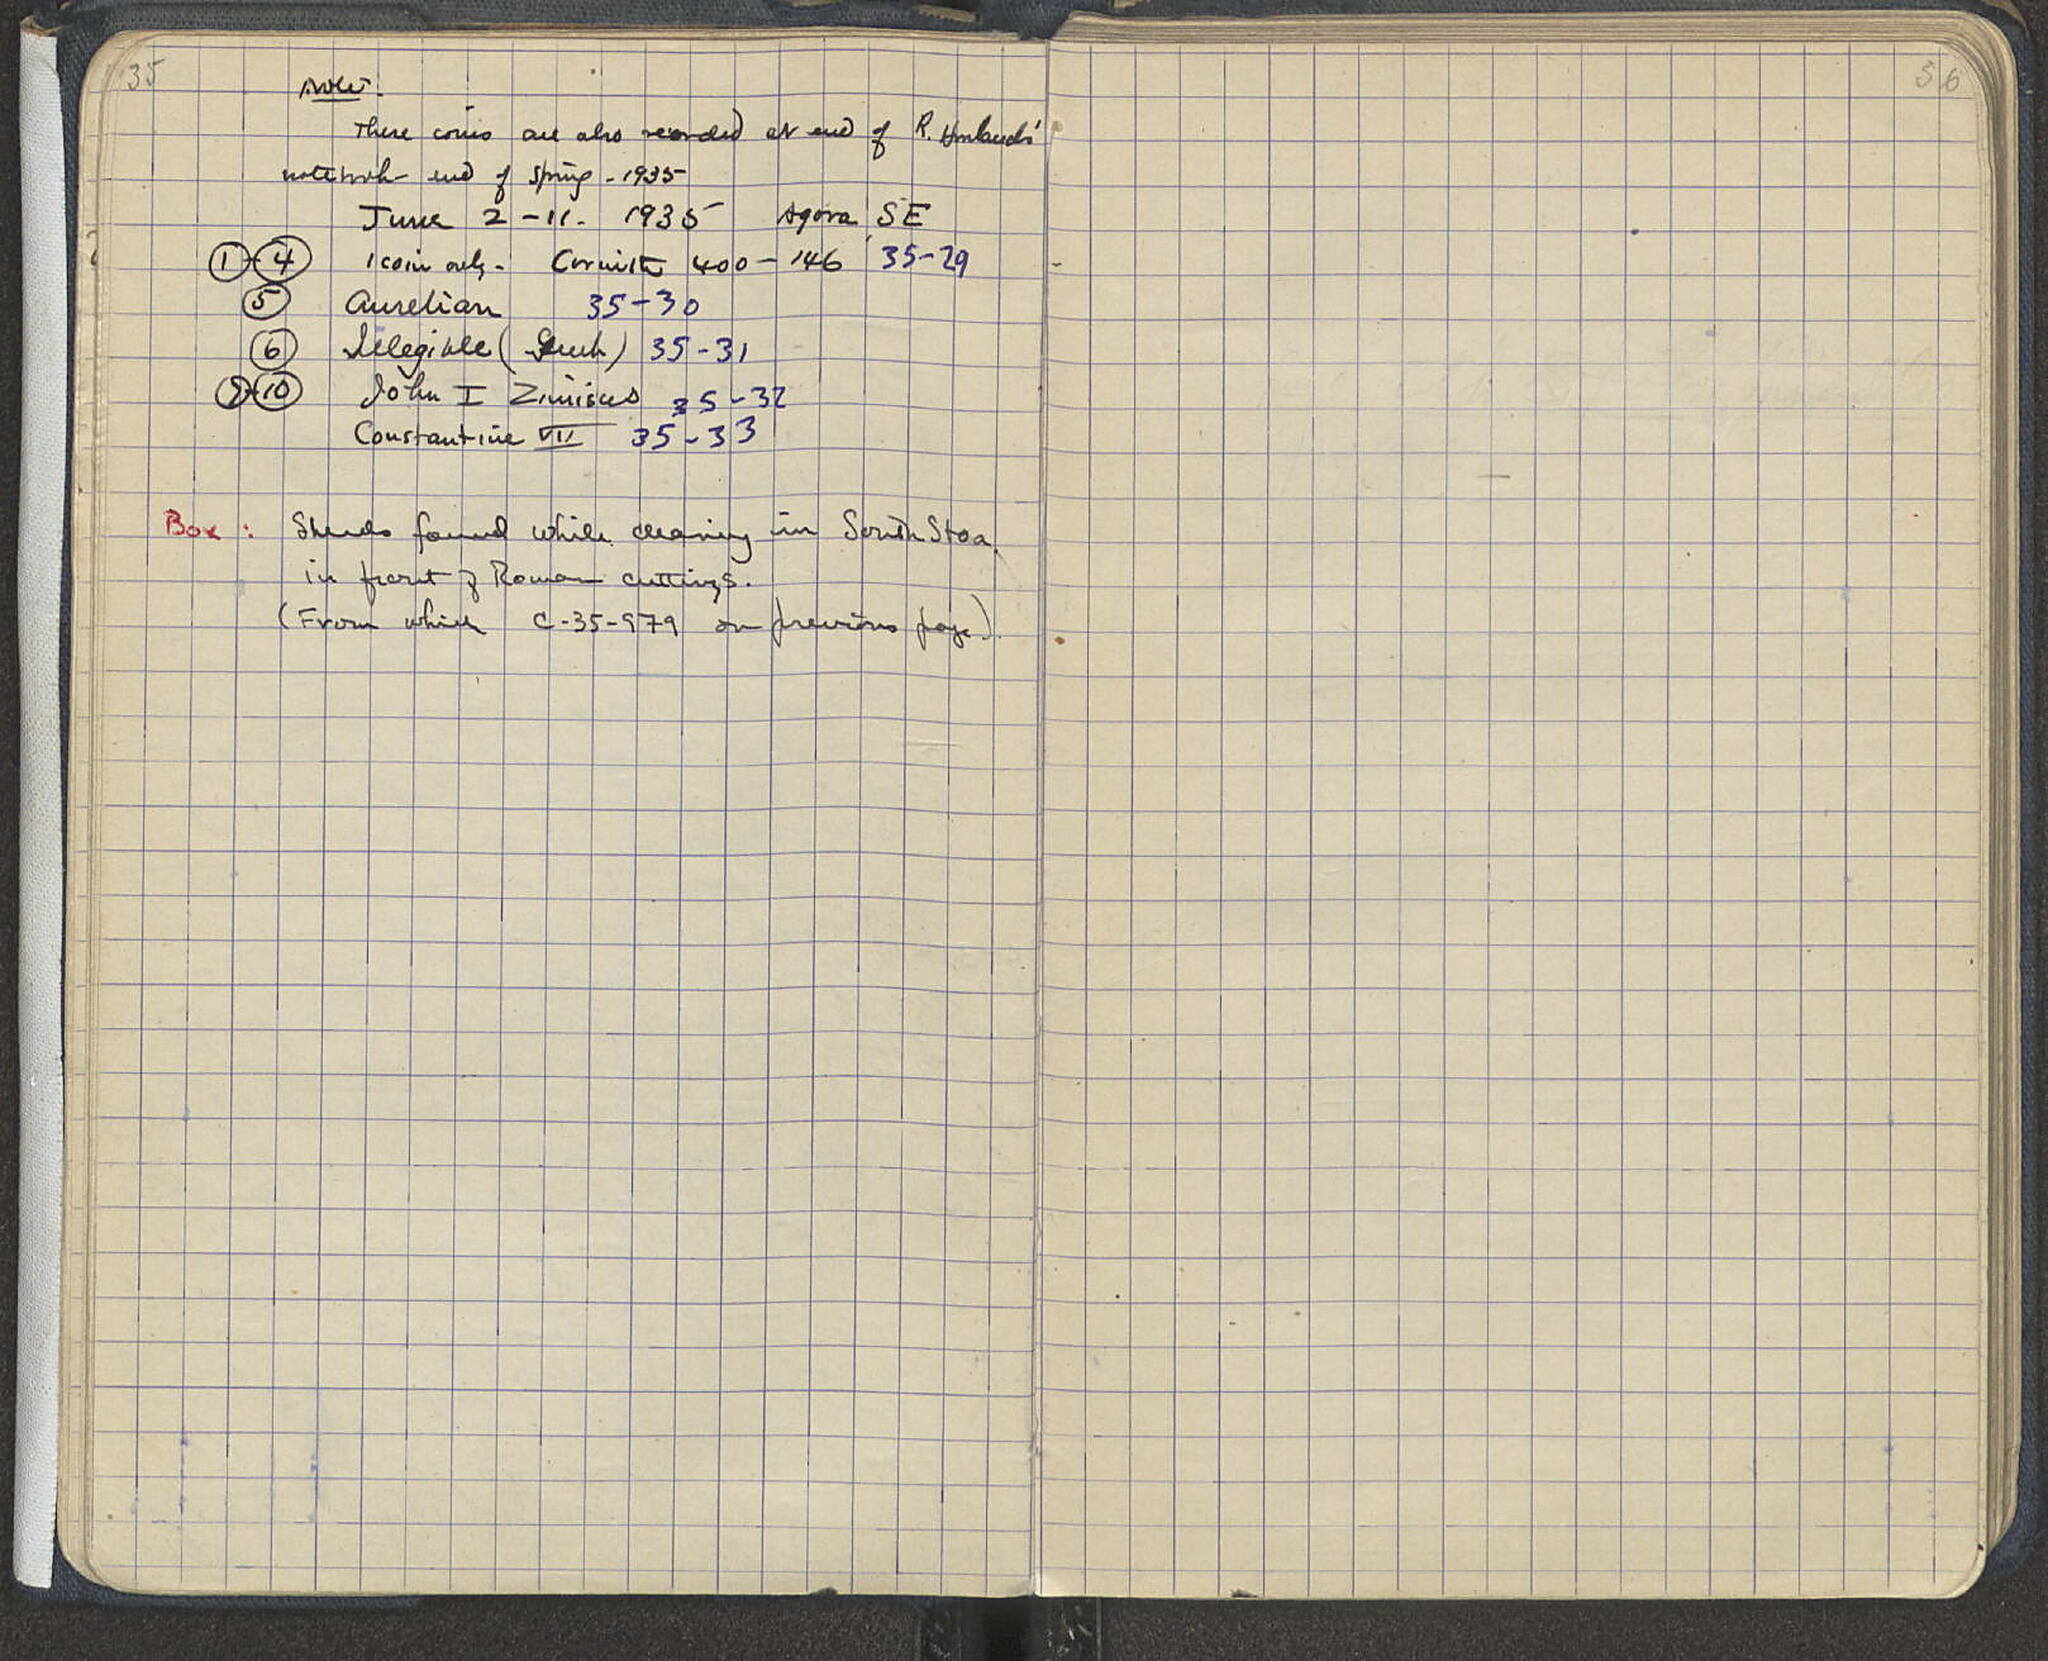 35
Note.
These coins are also recorded at end of R. Howland's
notebook end of Spring - 1935
June 2 - 11. 1935 Agora SE
1 - 4 1 coin only - Corinth 400 - 146 35-29
5 Aurelian 35-30
6 Illegible (Greek) 35-31
9-10 John I Zimisces 35-32
Constantine VII 35-33
Box : Sherds found while cleaning in South Stoa
in front of Roman cuttings.
(From which C-35-979 on previous page).
36